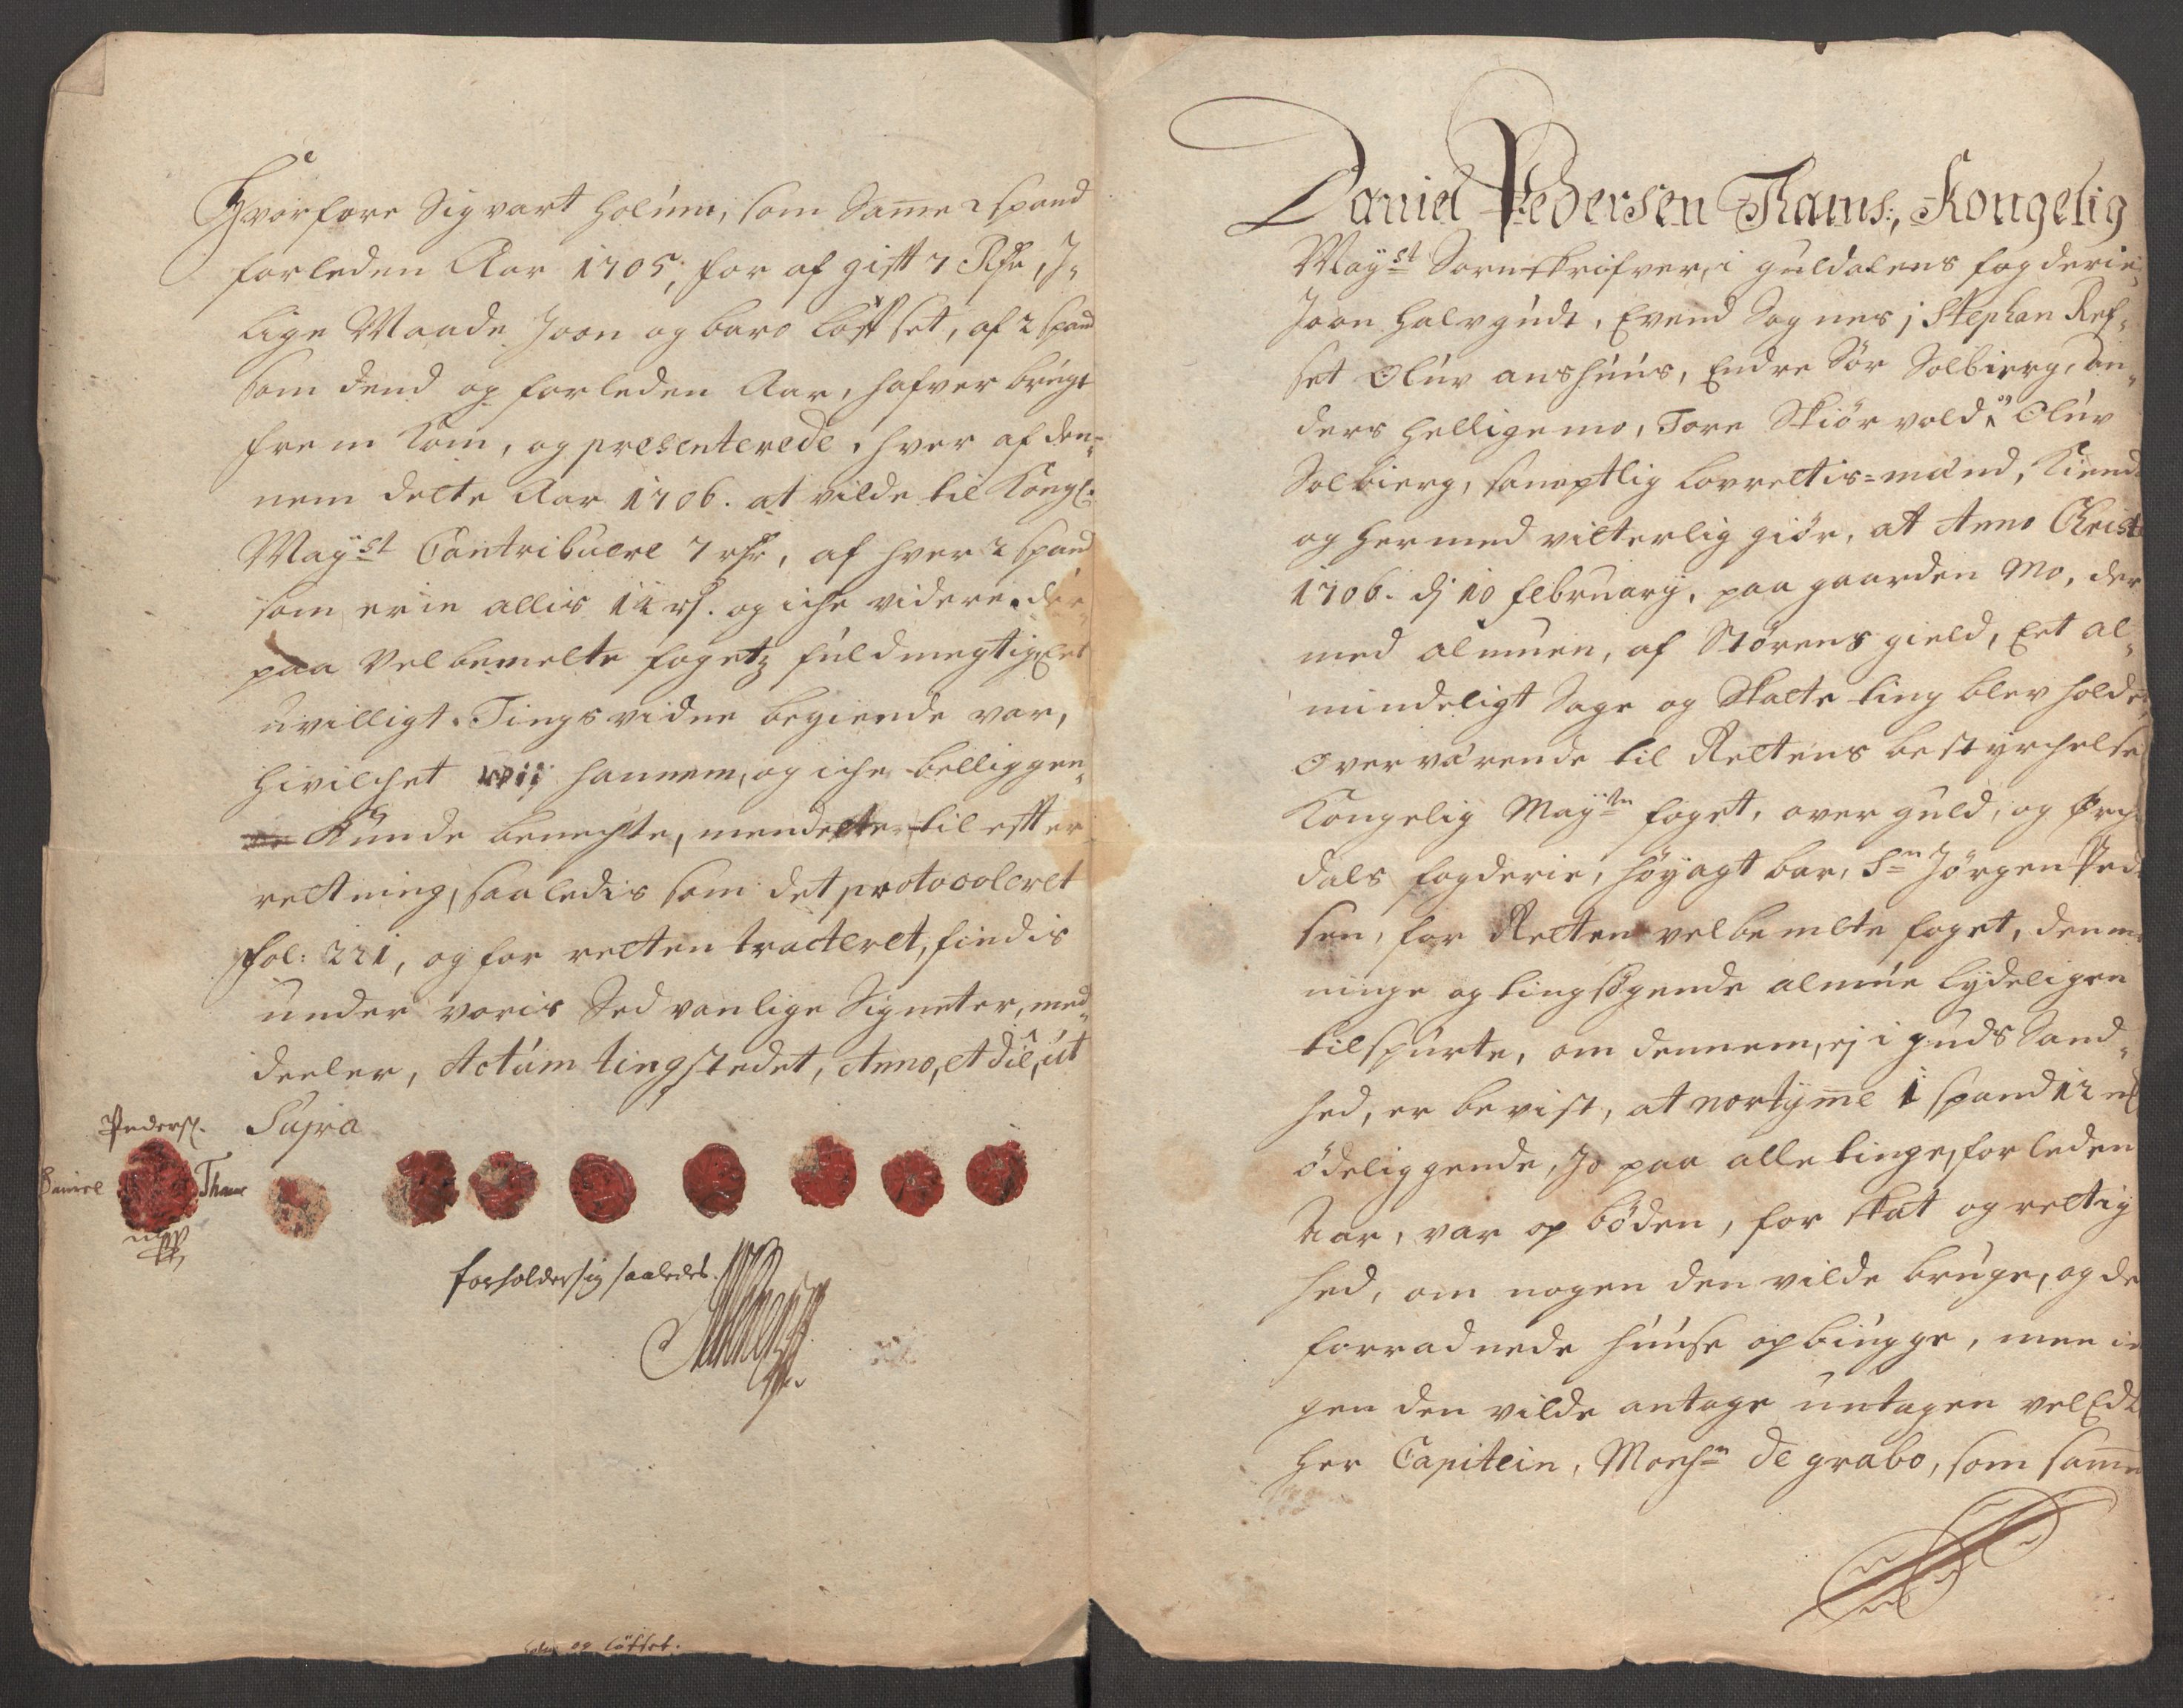 Hvorfore Sigvart Holúm, som Same 2 spand
forleden Aar 1705, for af gift 7 Rdr, J,,
lige Maade Joon og baro Löfset, af 2 spand
som dend og forleden Aar, hafver brúgt
frem kom, og presenterede, hver af den,,
nem dette Aar 1706. at vilde til Kongl:
Mayst Contribuere 7 rdr, af hver 2 spand
som er in allis 14 rd. og iche videre. der,,
paa Velbemelte fogetz fuldmegtig Et
uvilligt Tingsvidne begierede var,
hvilchet wij hannem, og iche billiggen,,
Kunde benechte, men dette til efter
retning, saaledis som det protocoleret
fol: 221, og for retten tracteret, findis
under voris Sedvanlige Signeter, med,,
deeler, Actúm tingstedet, Anno, et die, út
Supra
Peders.
Daniel Thams
mpp
forholder sig saaledes.
Holum og Löfset.
Daniel Pedersen Thams, Kongelig
Mayst Sorenskrifver, i Guldalens fogderie,
Joon Halvgúdt, Evend Sognes, Stephan Ref,,
set Olúv anshúús, Endre Sör Solbierg, An,,
ders Helligemo, Tore Skiörvold og Olúv
Solbierg, samptlig Lovrettis=mænd, Kiende
og hermed vitterlig giör, at Anno Christi
1706. dj 10 february, paa gaarden Mo, der
med almuen, af Störens gield, Eet al,,
mindeligt Sage og Skatte ting blev holdet,
Overværende til Rettens bestyrchelse
Kongelig Mayts foget, over Guld, og Orch
dals fogderie, Höyagtbar, Sr Jörgen Peder
sen, for Retten velbemelte foget, denn
ninge og tingsögende almúe lydeligen
tilspurte, om dennem, ej i Guds Sand,,
hed, er bevist, at nortyme 1 spand 12 ml
ödeliggende, Jo paa alle tinge, forleden
Aar, var opböden, for skat og rettig
hed, om nogen den vilde brúge, og de
forradnede húúse opbúgge, men in
gen den vilde antage untagen velEdl
Her Capitein, Monsr de grabo, som same